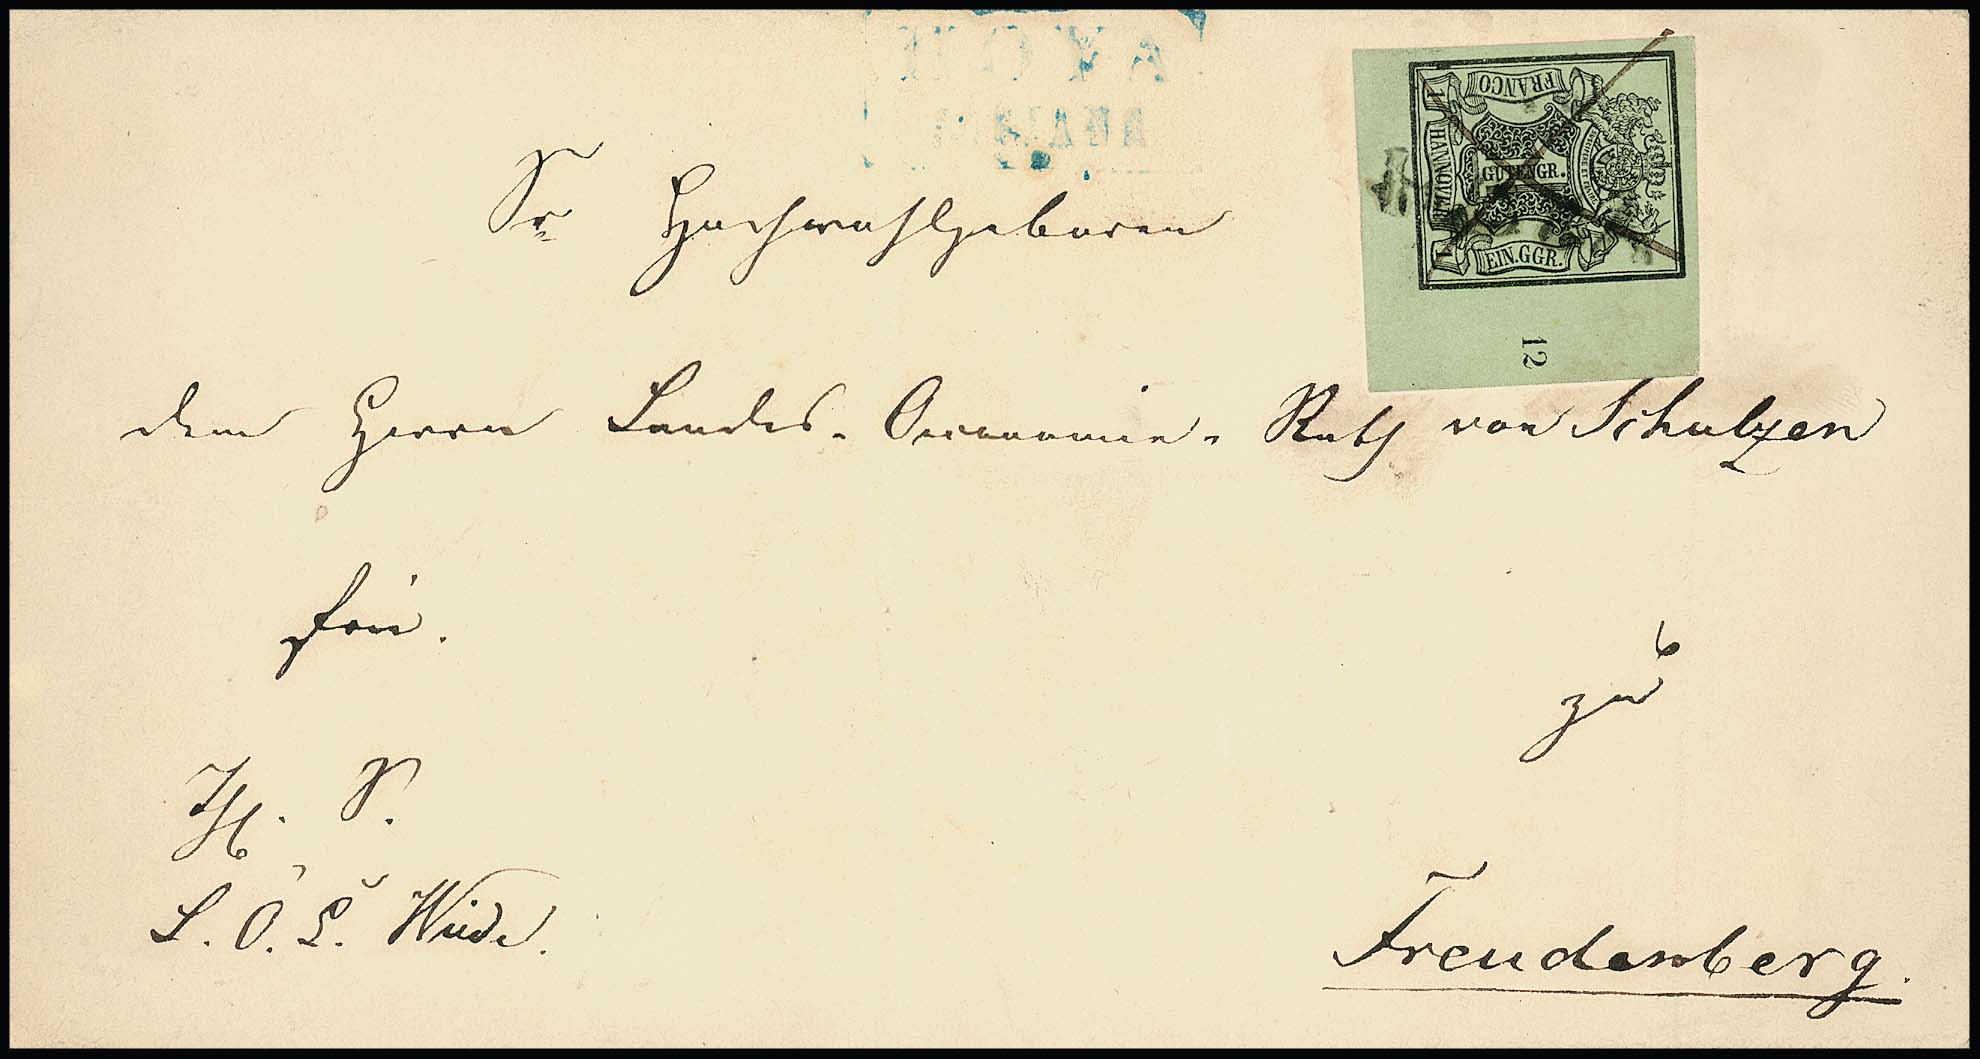 Sr Hochwohlgeboren
dem Herrn Landes-Oeconomie-Rath von Schulzen
frei.
zu
H. S.
L. O. C. Wüde.
Freudenberg.
FRANCO
1
HANNOVER
1
GUTENGR.
EIN.GGR.
12